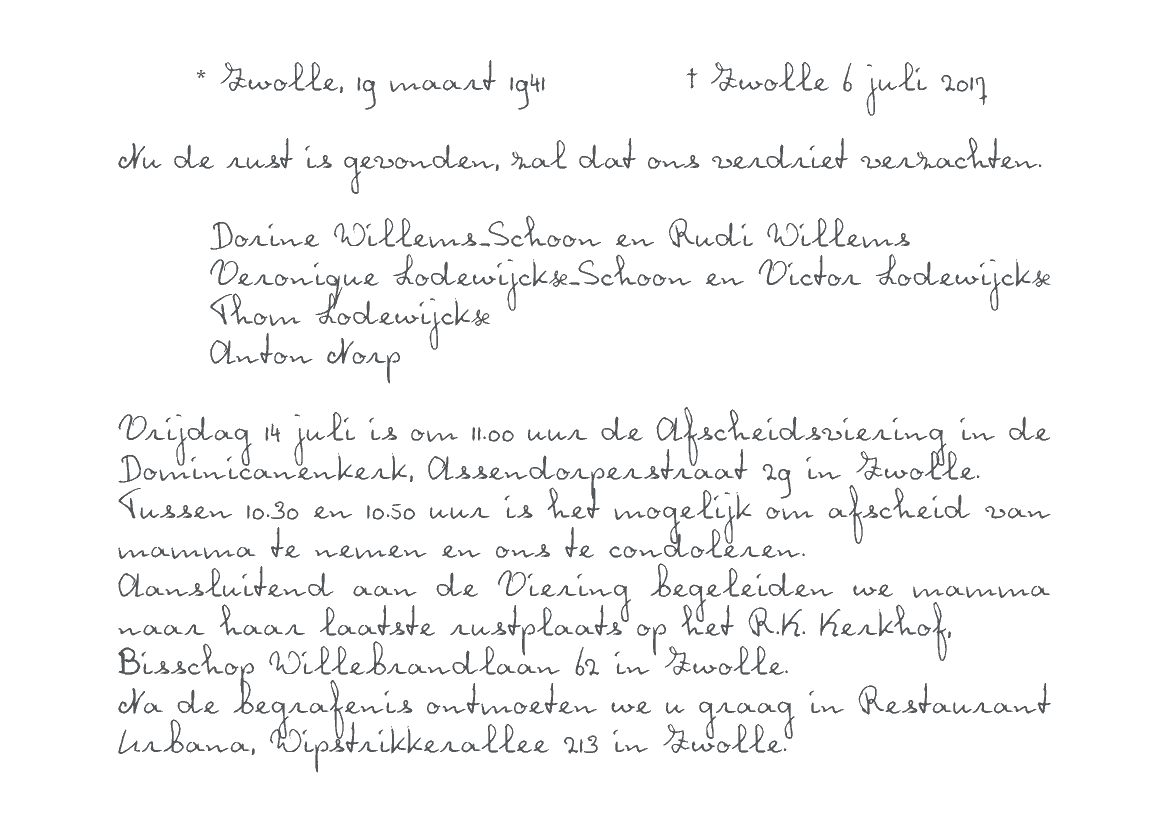 * Zwolle, 19 maart 1941 † Zwolle 6 juli 2017
Nu de rust is gevonden, zal dat ons verdriet verzachten.
Dorine Willems-Schoon en Rudi Willems
Veronique Lodewijckse-Schoon en Victor Lodewijckse
Thom Lodewijckse
Anton Norp
Vrijdag 14 juli is om 11.00 uur de Afscheidsviering in de
Dominicanenkerk, Assendorperstraat 29 in Zwolle.
Tussen 10.30 en 10.50 uur is het mogelijk om afscheid van
mamma te nemen en ons te condoleren.
Aansluitend aan de Viering begeleiden we mamma
naar haar laatste rustplaats op het R.K. Kerkhof,
Bisschop Willebrandlaan 62 in Zwolle.
Na de begrafenis ontmoeten we u graag in Restaurant
Urbana, Wipstrikkerallee 213 in Zwolle.